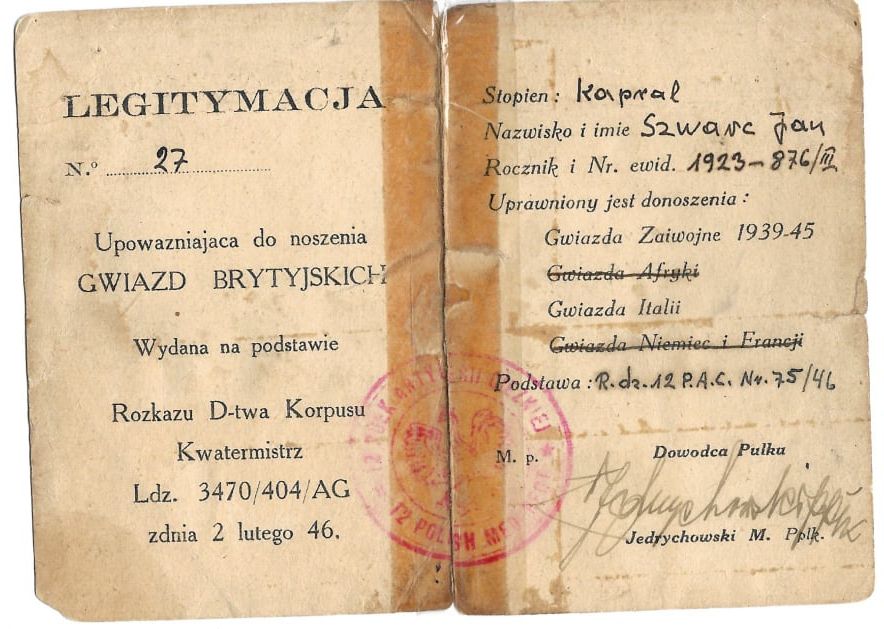 LEGITYMACJA
N.º 27
Upowazniajaca do noszenia
GWIAZD BRYTYJSKICH
Wydana na podstawie
Rozkazu D-twa Korpusu
Kwatermistrz
Ldz. 3470/404/AG
zdnia 2 lutego 46.
Stopien : Kapral
Nazwisko i imie Szwarc Jan
Rocznik i Nr. ewid. 1923-876/III
Uprawniony jest donoszenia :
Gwiazda Zaiwojne 1939-45
Gwiazda Afryki
Gwiazda Italii
Gwiazda Niemiec i Francji
Podstawa : R.dz. 12 P.A.C. Nr. 75/46
M. p.
Dowodca Pulku
Jedrychowski
Jedrychowski M. Pplk.
12 POLISH MED